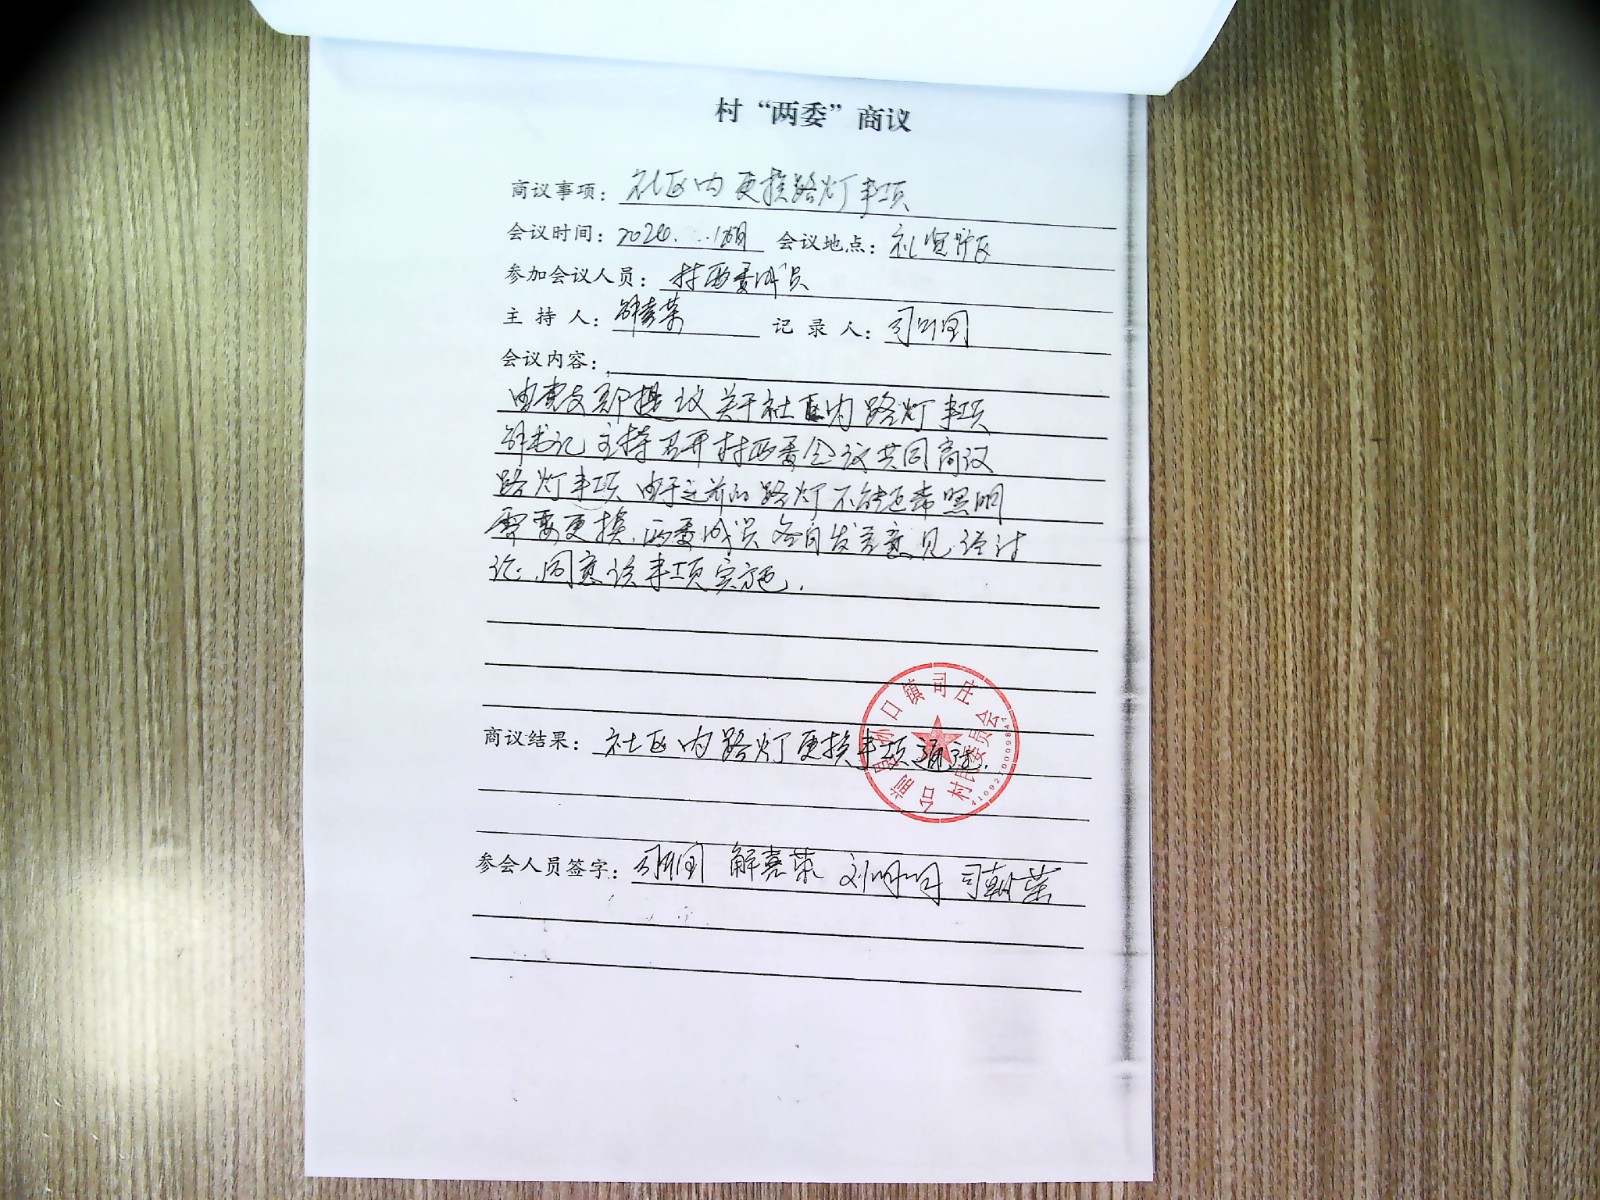 村“两委”商议
商议事项：社区内更换路灯事项
会议时间：2024. 会议地点：社
参加会议人员：村两委成员
主 持 人：解喜荣 记 录 人：司
会议内容：
由党支部提议关于社区内路灯事项
解书记主持召开村两委会议共同商议
路灯事项 由于之前的路灯不能正常照明
需要更换.两委成员各自发言意见.经讨
论.同意该事项实施.
商议结果：社区内路灯更换事项通过.
台前县孙口镇司庄
村民委员会
参会人员签字：司 解喜荣 刘明月 司朝荣